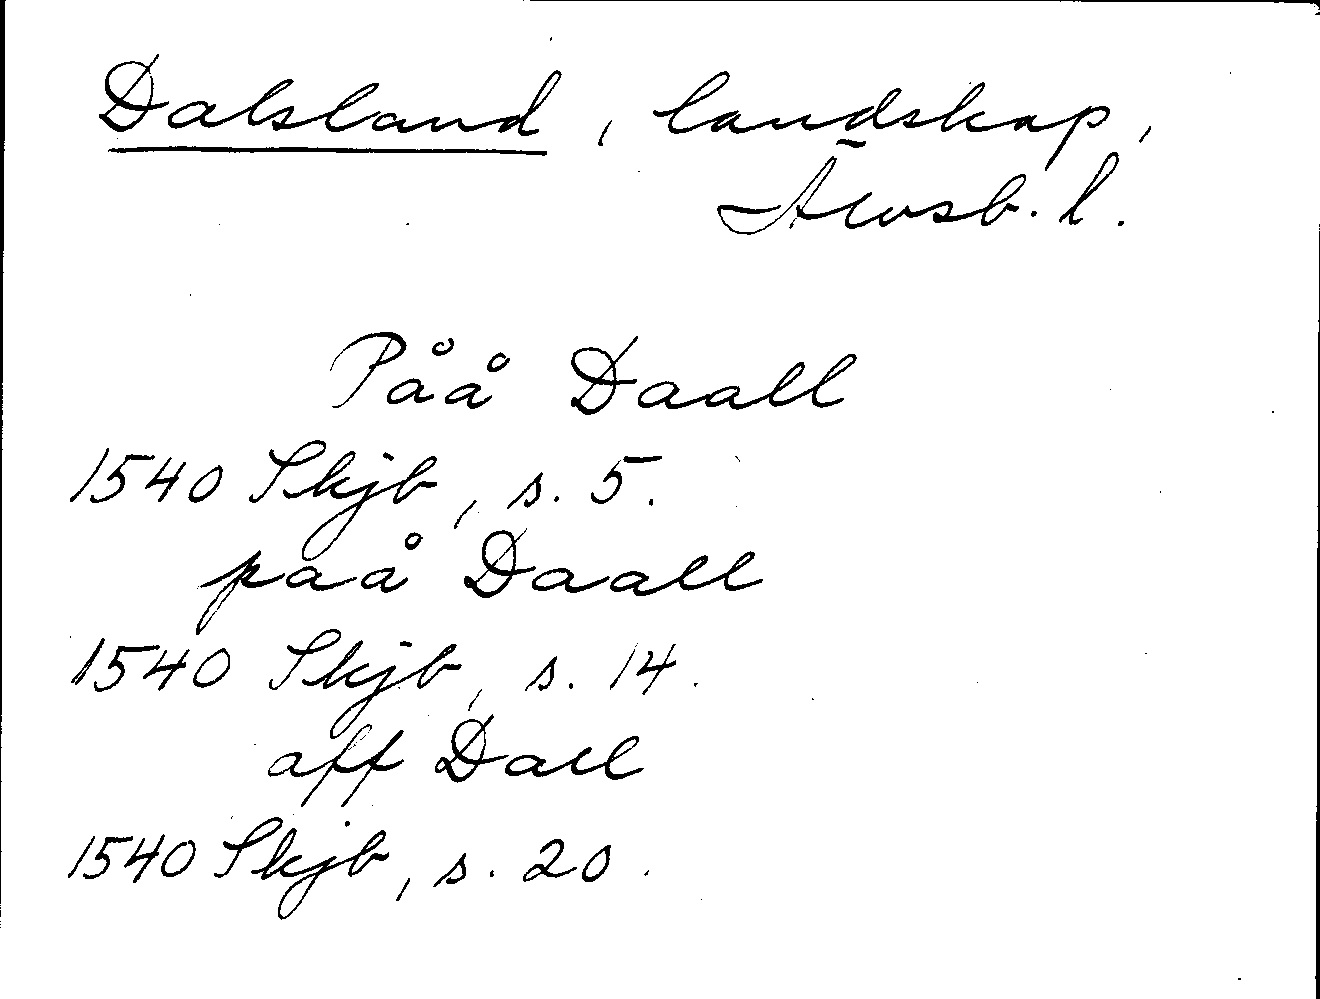 Dalsland, landskap,
Älvsb. l.
Påå Daall
1540 Skjb, s. 5.
paå Daall
1540 Skjb, s. 14.
aff Dall
1540 Skjb, s. 20.